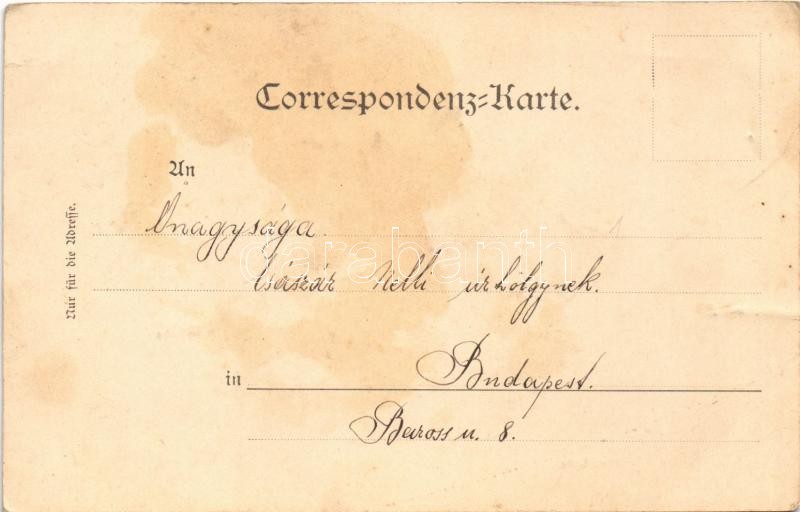 Correspondenz=Karte.
An
Önagysága
Császár Nelli úrhölgynek.
in Budapest.
Baross u. 8.
Nur für die Adresse.
darabanth